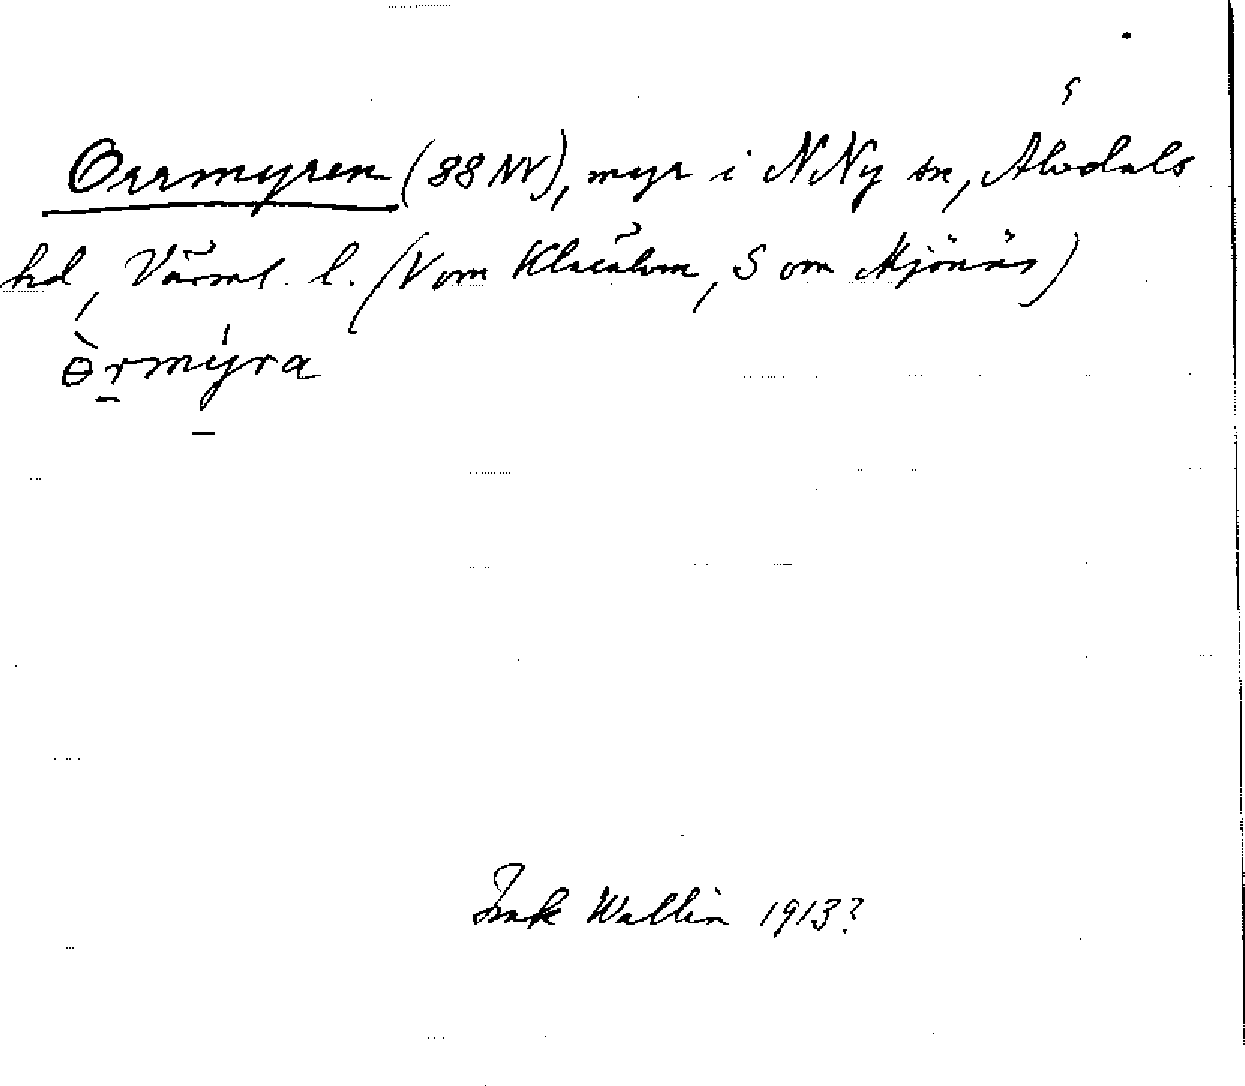 Orrmyren (88 NV), myr i N Ny sn, Älvdals
hd, Värml. l. (V om Klarälven, S om Mjönäs)
ɵ̀rmy̍ra
Isak Wallin 1913?